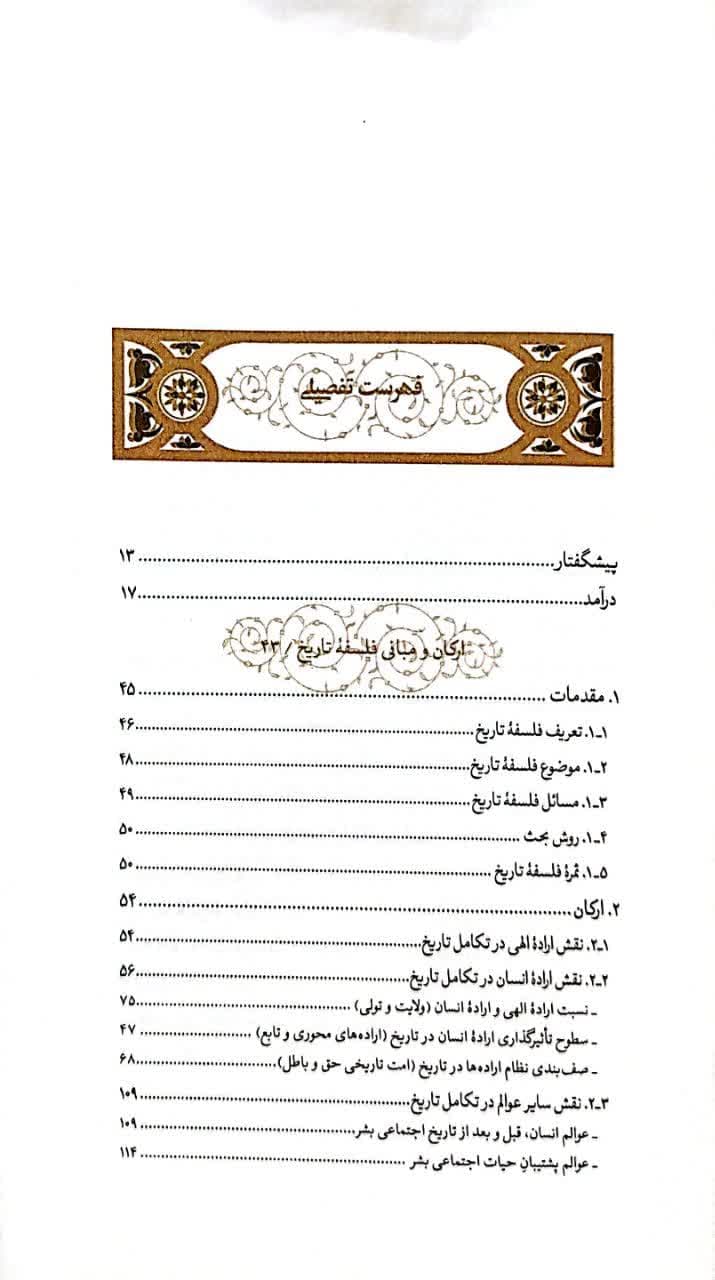 فهرست تفصیلی
پیشگفتار ........ ۱۳
درآمد ........ ۱۷
ارکان و مبانی فلسفۀ تاریخ / ۴۳
۱. مقدمات ........ ۴۵
۱-۱. تعریف فلسفۀ تاریخ ........ ۴۶
۱-۲. موضوع فلسفۀ تاریخ ........ ۴۸
۱-۳. مسائل فلسفۀ تاریخ ........ ۴۹
۱-۴. روش بحث ........ ۵۰
۱-۵. ثمرۀ فلسفۀ تاریخ ........ ۵۰
۲. ارکان ........ ۵۴
۲-۱. نقش ارادۀ الهی در تکامل تاریخ ........ ۵۴
۲-۲. نقش ارادۀ انسان در تکامل تاریخ ........ ۵۶
ـ نسبت ارادۀ الهی و ارادۀ انسان (ولایت و تولی) ........ ۷۵
ـ سطوح تأثیرگذاری ارادۀ انسان در تاریخ (اراده‌های محوری و تابع) ........ ۴۷
ـ صف‌بندی نظام اراده‌ها در تاریخ (امت تاریخی حق و باطل) ........ ۶۸
۲-۳. نقش سایر عوالم در تکامل تاریخ ........ ۱۰۹
ـ عوالم انسان، قبل و بعد از تاریخ اجتماعی بشر ........ ۱۰۹
ـ عوالم پشتیبانِ حیات اجتماعی بشر ........ ۱۱۴